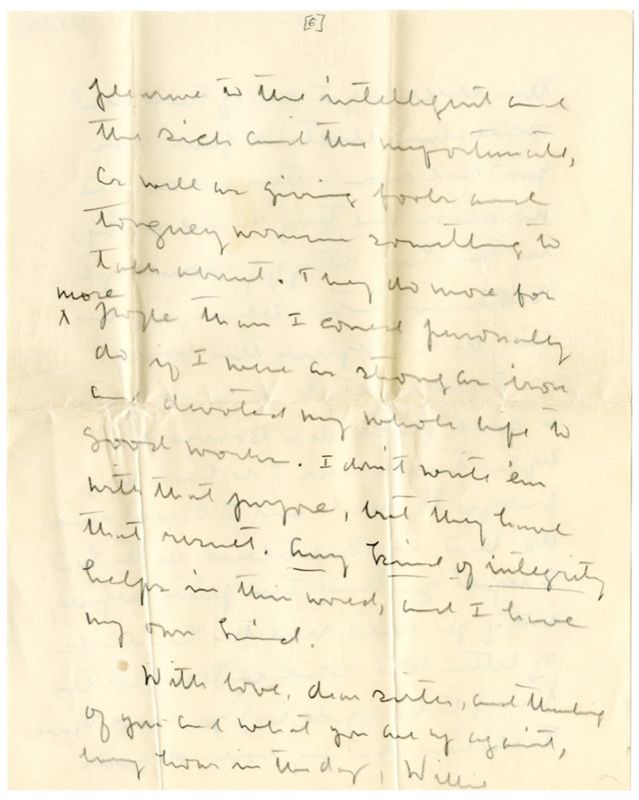 [6]
pleasure to the intelligent and
the sick and the unfortunate,
as well as giving fools and
tonguey women something to
talk about. They do more for
more
^ people than I could personally
do if I were as strong as iron
and devoted my whole life to
good works. I don't write 'em
with that purpose, but they have
that result. Any kind of integrity
helps in this world, and I have
my own kind.
With love, dear sister, and thinking
of you and what you are up against,
every hour in the day, Willie